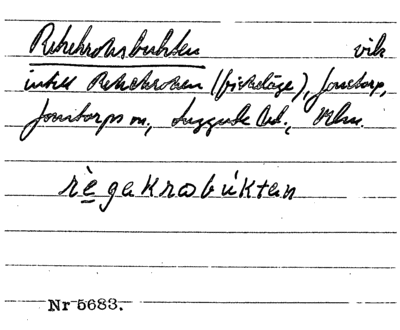 Rekekroksbukten vik
intill Rekekroken (fiskeläge), Jonstorp,
Jonstorps sn, Luggude hd., Mlm.
règakrosbúktan
Nr 5683.